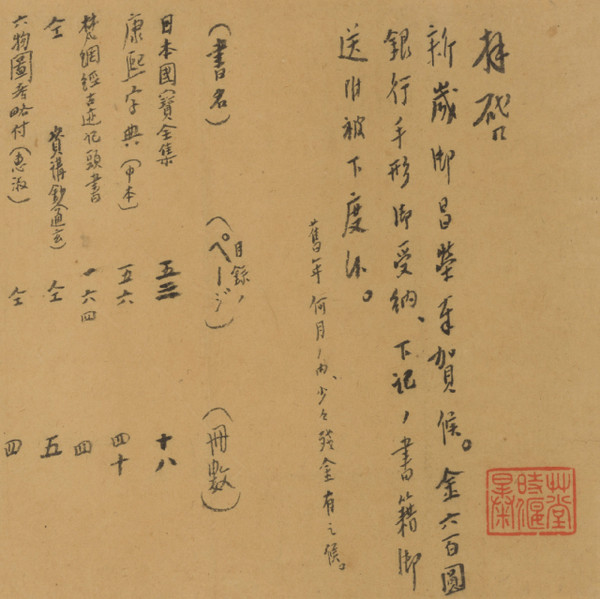 拝啓
新歳御昌榮奉賀候。金六百圓
銀行手形御受納、下記ノ書籍御
送附被下度候。
舊年何月ノ内、少々残金有之候。
(書名) (目録ノページ) (冊数)
日本國寶全集 五三 十八
康熙字典(中本) 五六 四十
梵網經古迹記頭書 一六四 四
仝 資講鈔通玄) 仝 五
六物圖考略付(惠淑) 仝 四